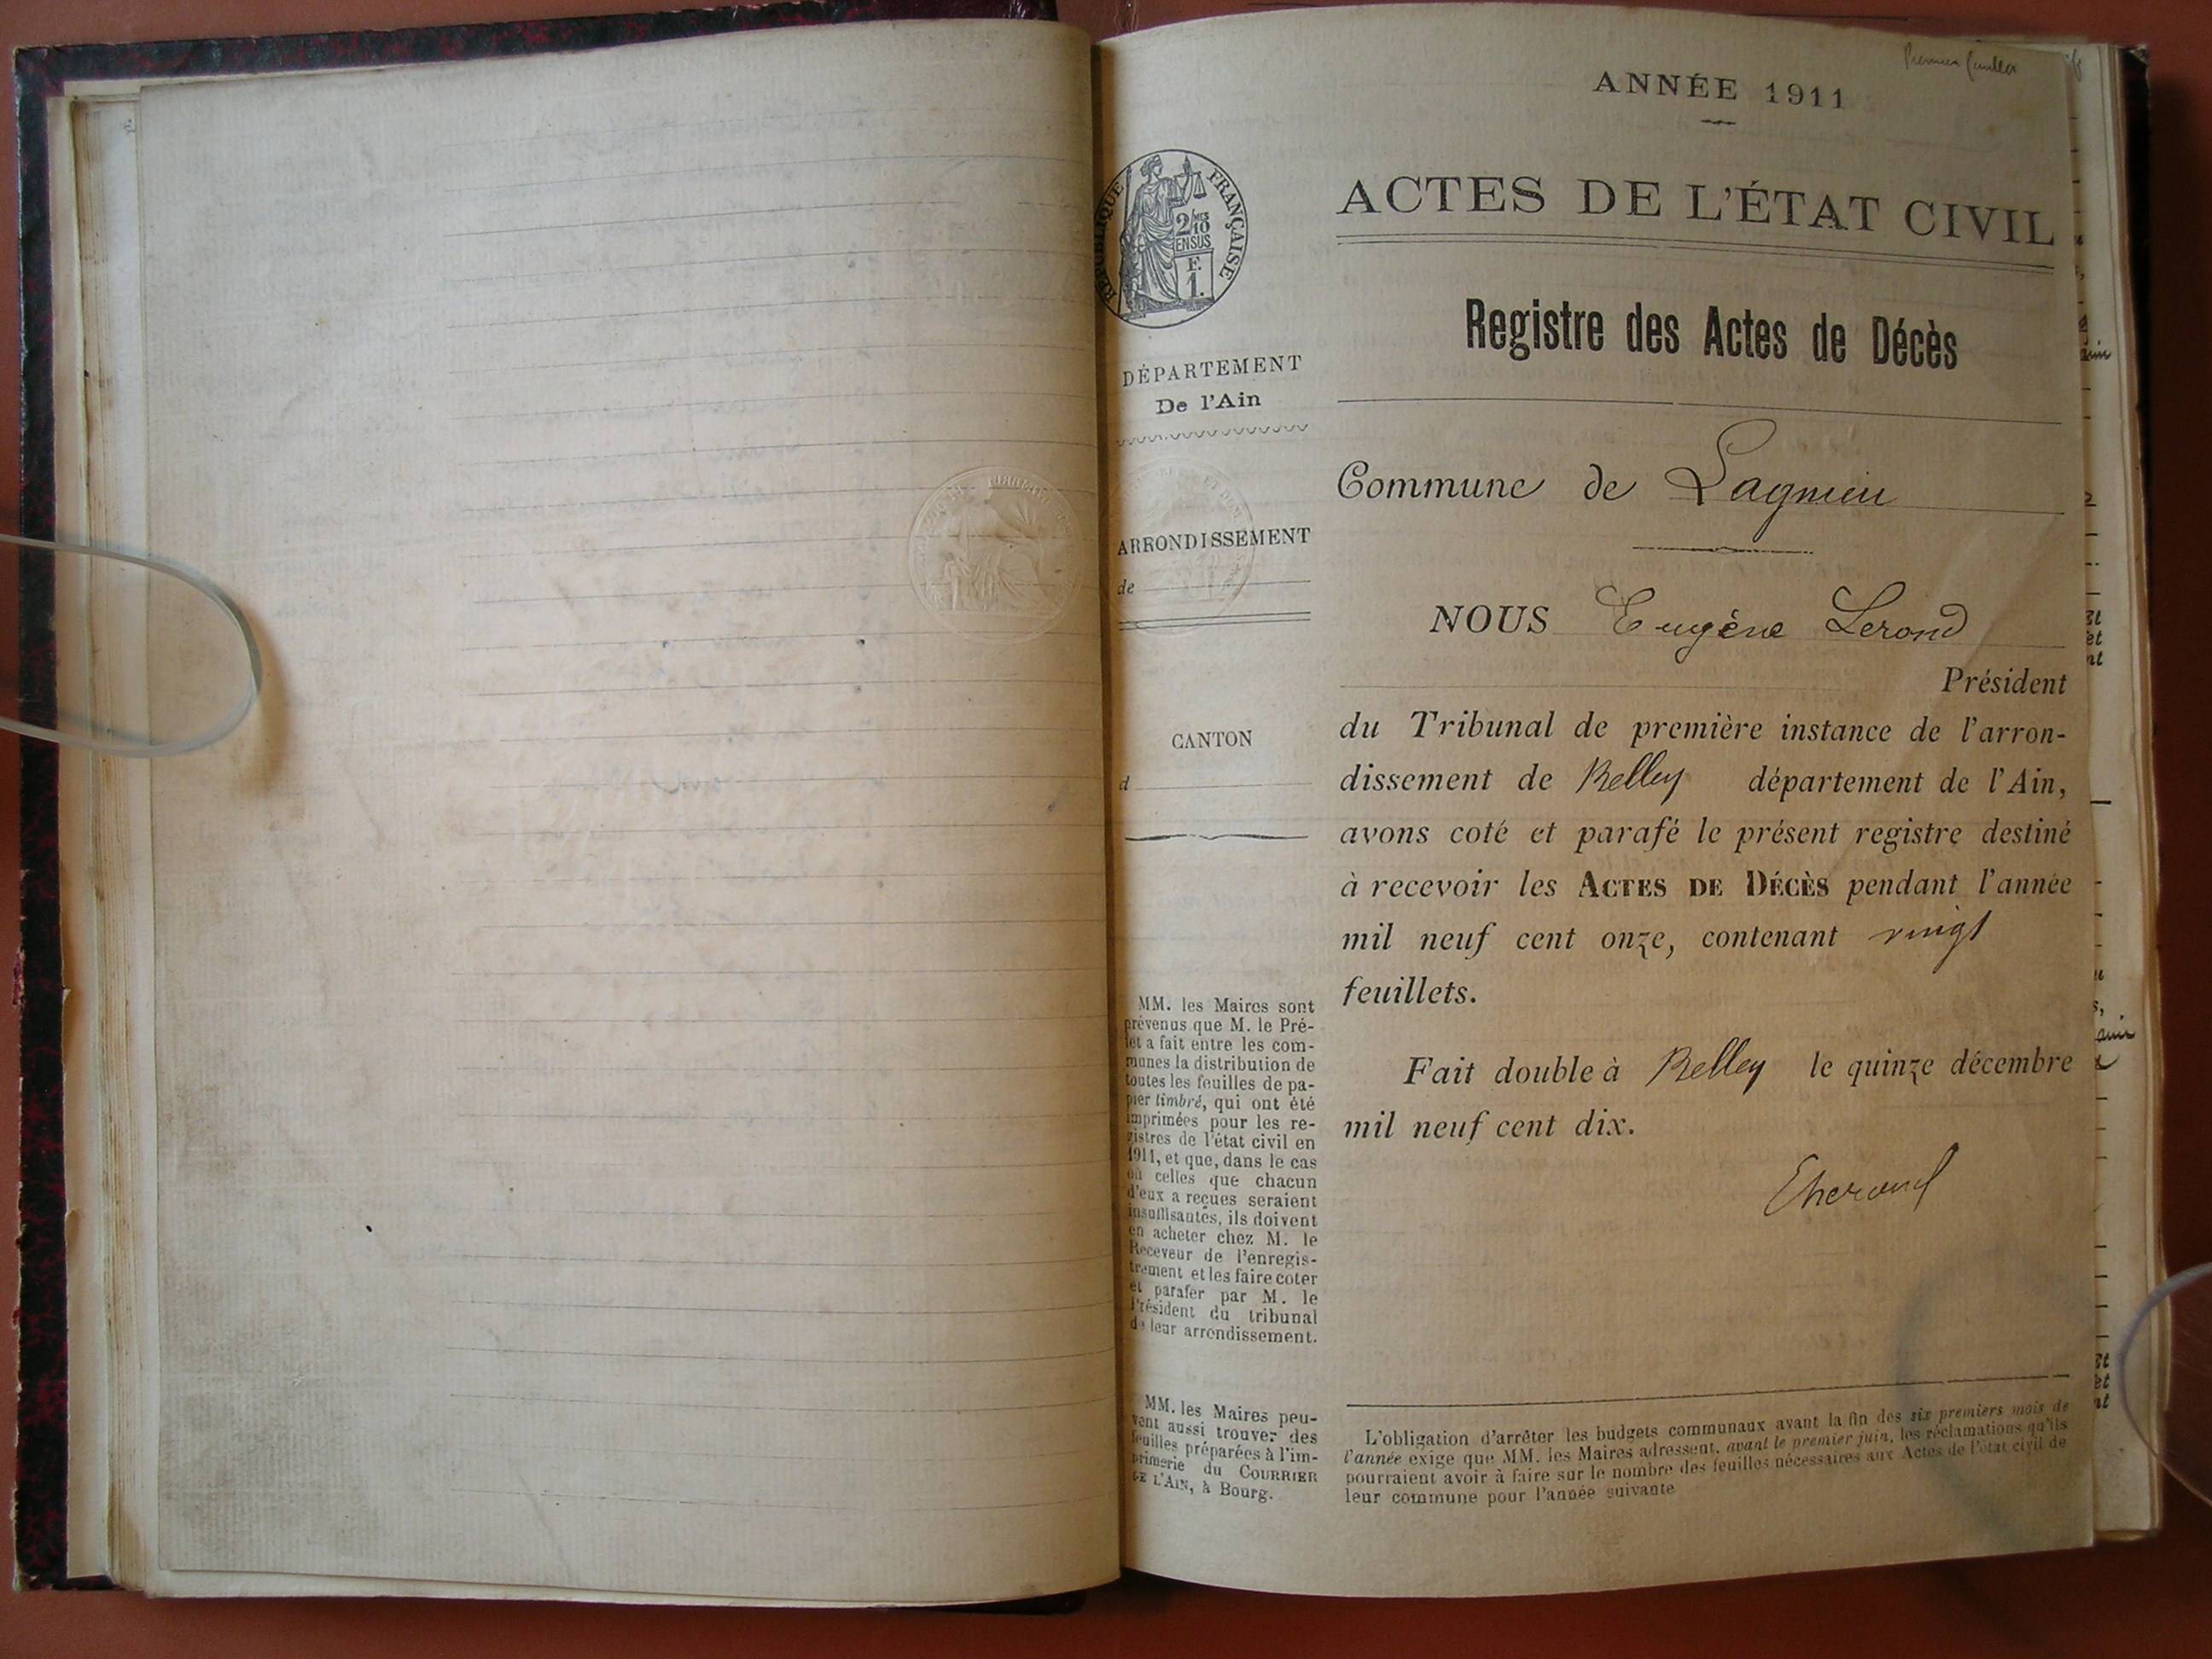 Premier feuillet
ANNÉE 1911
RÉPUBLIQUE FRANÇAISE
2/10MES
EN SUS
F.
1.
ACTES DE L'ÉTAT CIVIL
Registre des Actes de Décès
DÉPARTEMENT
De l'Ain
ARRONDISSEMENT
de
CANTON
d
MM. les Maires sont
prévenus que M. le Pré-
fet a fait entre les com-
munes la distribution de
toutes les feuilles de pa-
pier timbré, qui ont été
imprimées pour les re-
gistres de l'état civil en
1911, et que, dans le cas
où celles que chacun
d'eux a reçues seraient
insuffisantes, ils doivent
en acheter chez M. le
Receveur de l'enregis-
trement et les faire coter
et parafer par M. le
Président du tribunal
de leur arrondissement.
MM. les Maires peu-
vent aussi trouver des
feuilles préparées à l'im-
primerie du COURRIER
DE L'AIN, à Bourg.
Commune de Lagnieu
NOUS Eugène Lerond
Président
du Tribunal de première instance de l'arron-
dissement de Belley département de l'Ain,
avons coté et parafé le présent registre destiné
à recevoir les ACTES DE DÉCÈS pendant l'année
mil neuf cent onze, contenant vingt
feuillets.
Fait double à Belley le quinze décembre
mil neuf cent dix.
L'obligation d'arrêter les budgets communaux avant la fin des six premiers mois de
l'année exige que MM. les Maires adressent, avant le premier juin, les réclamations qu'ils
pourraient avoir à faire sur le nombre des feuilles nécessaires aux Actes de l'état civil de
leur commune pour l'année suivante